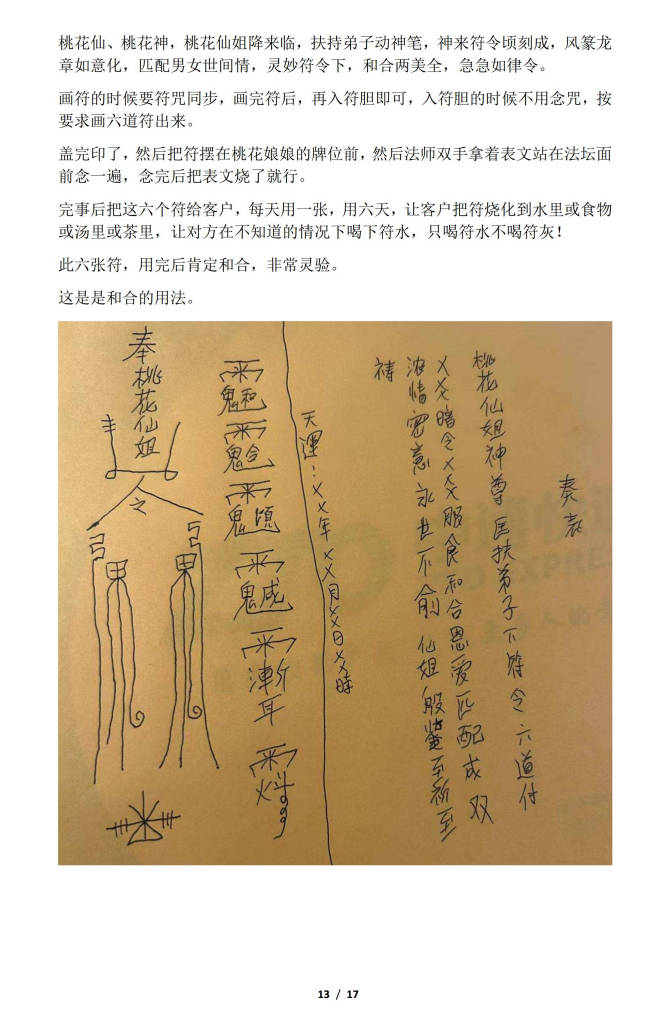 桃花仙、桃花神，桃花仙姐降来临，扶持弟子动神笔，神来符令顷刻成，风篆龙
章如意化，匹配男女世间情，灵妙符令下，和合两美全，急急如律令。
画符的时候要符咒同步，画完符后，再入符胆即可，入符胆的时候不用念咒，按
要求画六道符出来。
盖完印了，然后把符摆在桃花娘娘的牌位前，然后法师双手拿着表文站在法坛面
前念一遍，念完后把表文烧了就行。
完事后把这六个符给客户，每天用一张，用六天，让客户把符烧化到水里或食物
或汤里或茶里，让对方在不知道的情况下喝下符水，只喝符水不喝符灰！
此六张符，用完后肯定和合，非常灵验。
这是是和合的用法。
奏表
桃花仙姐神尊 扶弟子下符令六道付
XXX暗令XXX服食和合恩爱匹配成双
浓情密意永世不俞仙姐 鉴至祈至
祷
天運：XX年XX月XX日XX時
奉桃花仙姐
13 / 17